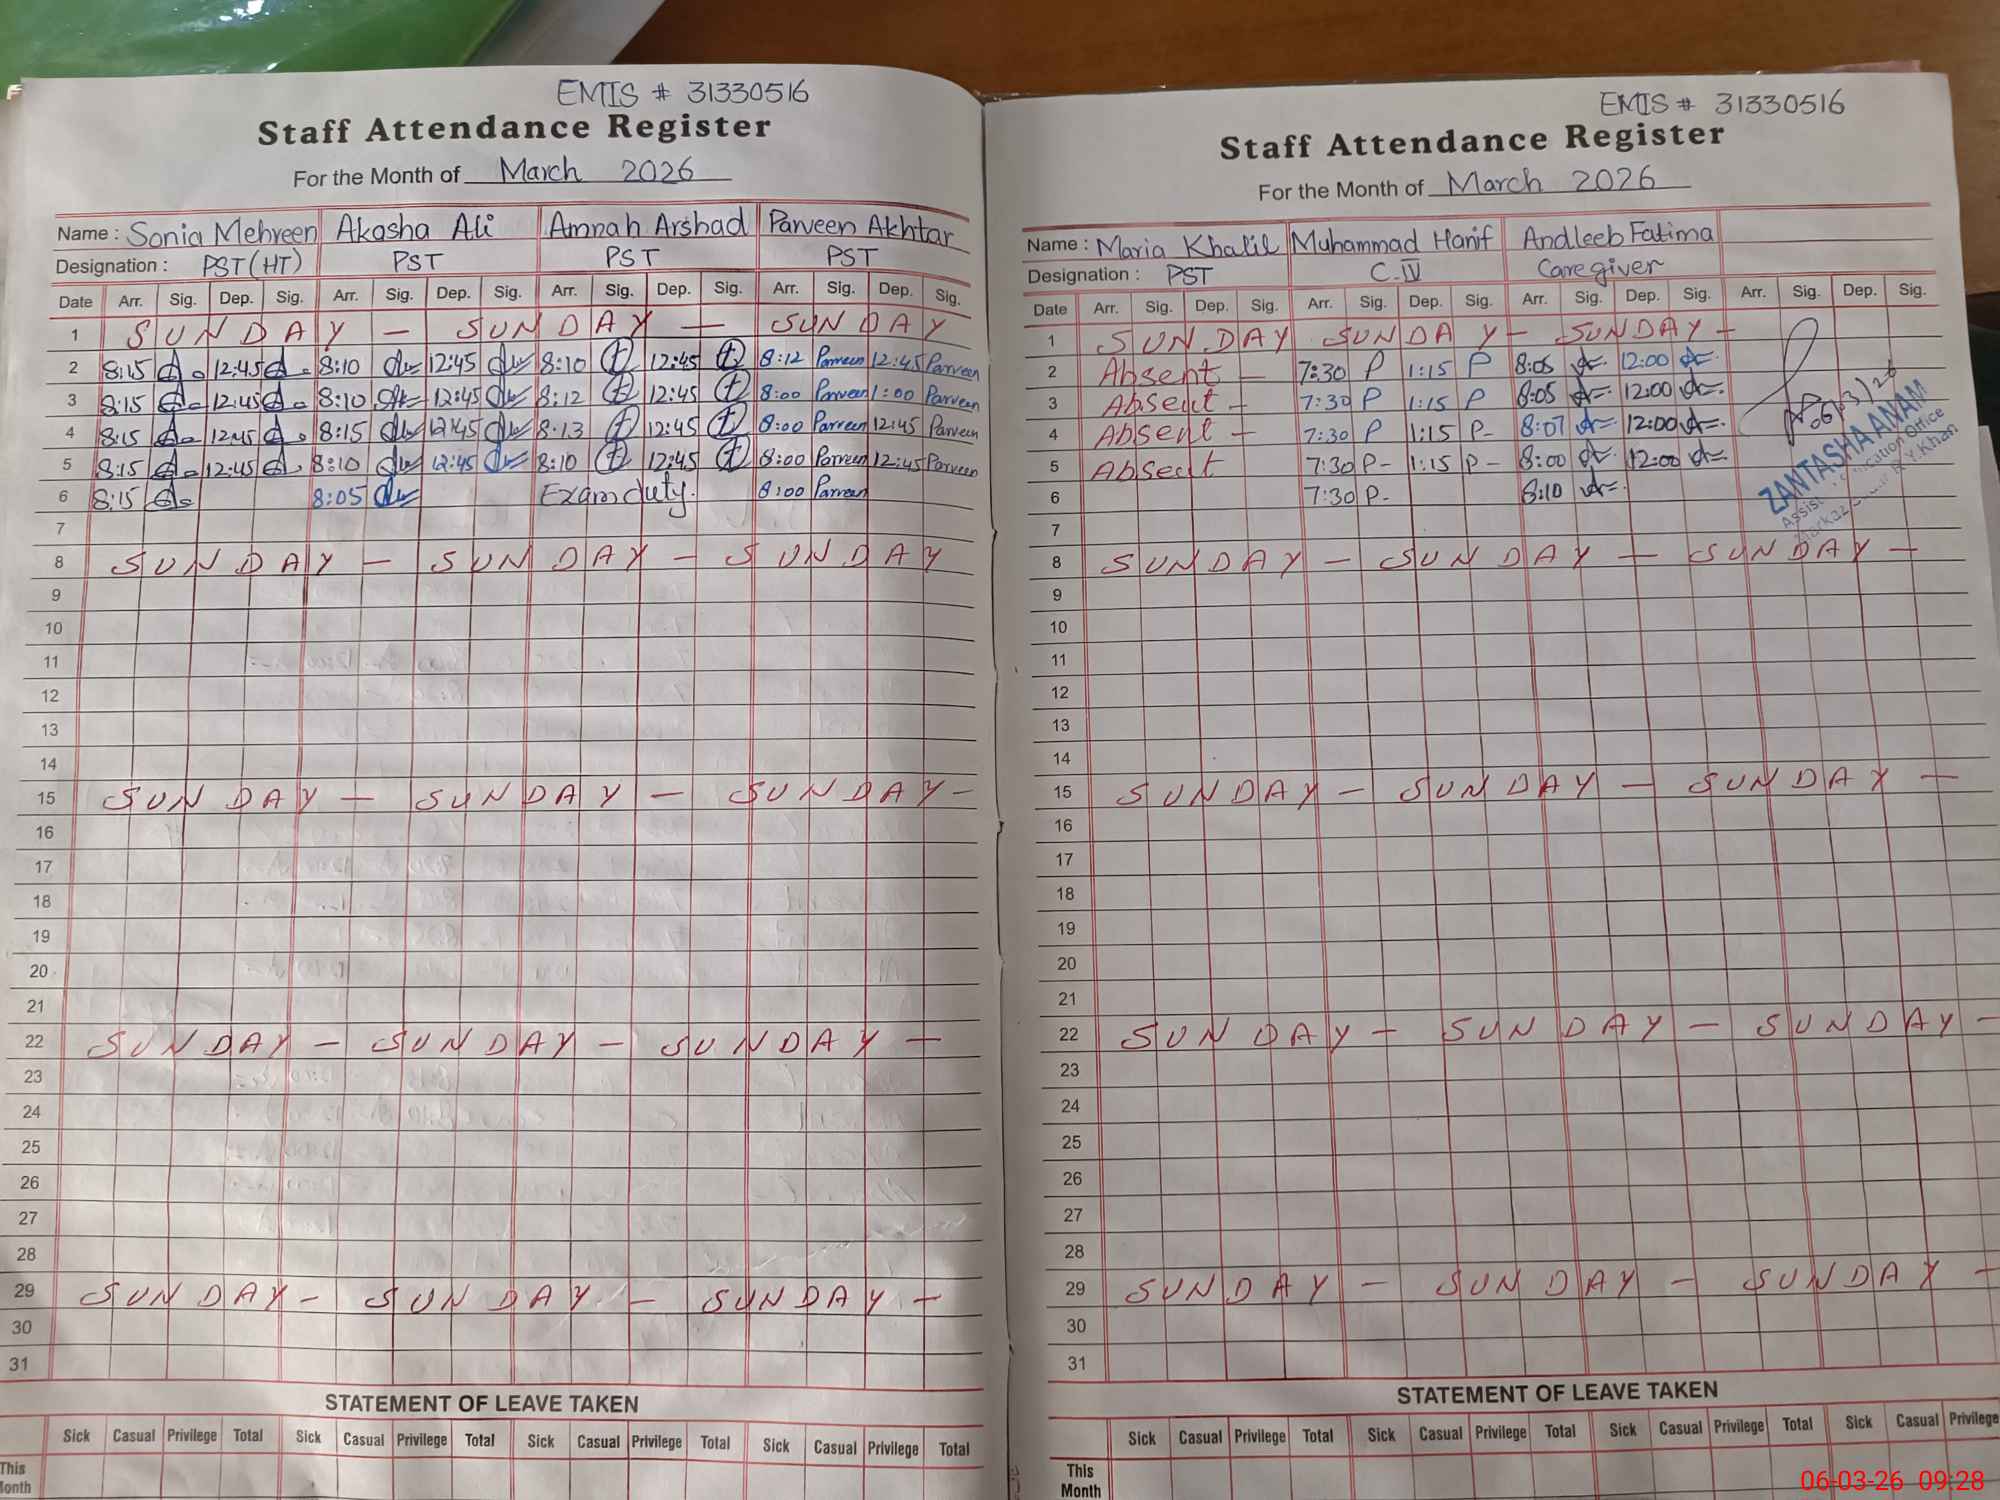 EMIS # 31330516
Staff Attendance Register
For the Month of March 2026
Name : Sonia Mehreen Akasha Ali Amnah Arshad Parveen Akhtar
Designation : PST (HT) PST PST PST
Date Arr. Sig. Dep. Sig. Arr. Sig. Dep. Sig. Arr. Sig. Dep. Sig. Arr. Sig. Dep. Sig.
1 SUNDAY - SUNDAY - SUNDAY
2 8:15 12:45 8:10 12:45 8:10 12:45 8:12 Parveen 12:45 Parveen
3 8:15 12:45 8:10 12:45 8:12 12:45 8:00 Parveen 1:00 Parveen
4 8:15 12:45 8:15 12:45 8:13 12:45 8:00 Parveen 12:45 Parveen
5 8:15 12:45 8:10 12:45 8:10 12:45 8:00 Parveen 12:45 Parveen
6 8:15 8:05 Exam duty. 8:00 Parveen
7
8 SUNDAY - SUNDAY - SUNDAY
9
10
11
12
13
14
15 SUNDAY - SUNDAY - SUNDAY -
16
17
18
19
20
21
22 SUNDAY - SUNDAY - SUNDAY -
23
24
25
26
27
28
29 SUNDAY - SUNDAY - SUNDAY -
30
31
STATEMENT OF LEAVE TAKEN
Sick Casual Privilege Total Sick Casual Privilege Total Sick Casual Privilege Total Sick Casual Privilege Total
This
Month
EMIS # 31330516
Staff Attendance Register
For the Month of March 2026
Name : Maria Khalil Muhammad Hanif Andleeb Fatima
Designation : PST C.IV Caregiver
Date Arr. Sig. Dep. Sig. Arr. Sig. Dep. Sig. Arr. Sig. Dep. Sig. Arr. Sig. Dep. Sig.
1 SUNDAY SUNDAY - SUNDAY -
2 Absent - 7:30 P 1:15 P 8:05 12:00
3 Absent - 7:30 P 1:15 P 8:05 12:00
4 Absent - 7:30 P 1:15 P- 8:07 12:00
5 Absent 7:30 P- 1:15 P- 8:00 12:00
6 7:30 P- 8:10
ZANTASHA ANAM
7
8 SUNDAY - SUNDAY - SUNDAY -
9
10
11
12
13
14
15 SUNDAY - SUNDAY - SUNDAY -
16
17
18
19
20
21
22 SUNDAY - SUNDAY - SUNDAY -
23
24
25
26
27
28
29 SUNDAY - SUNDAY - SUNDAY -
30
31
STATEMENT OF LEAVE TAKEN
Sick Casual Privilege Total Sick Casual Privilege Total Sick Casual Privilege Total Sick Casual Privilege
This
Month
06-03-26 09:28